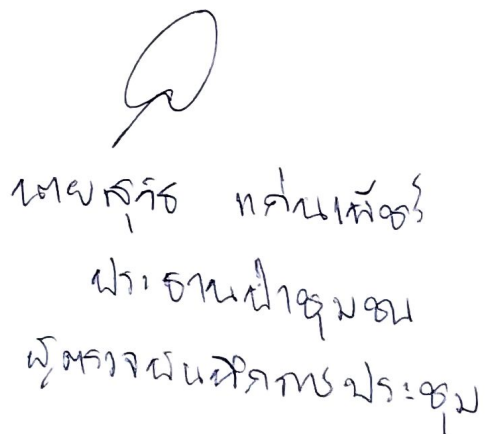 นายสุวิธ แก่นเพ็ชร์
ประธานป่าชุมชน
ผู้ตรวจบันทึกการประชุม